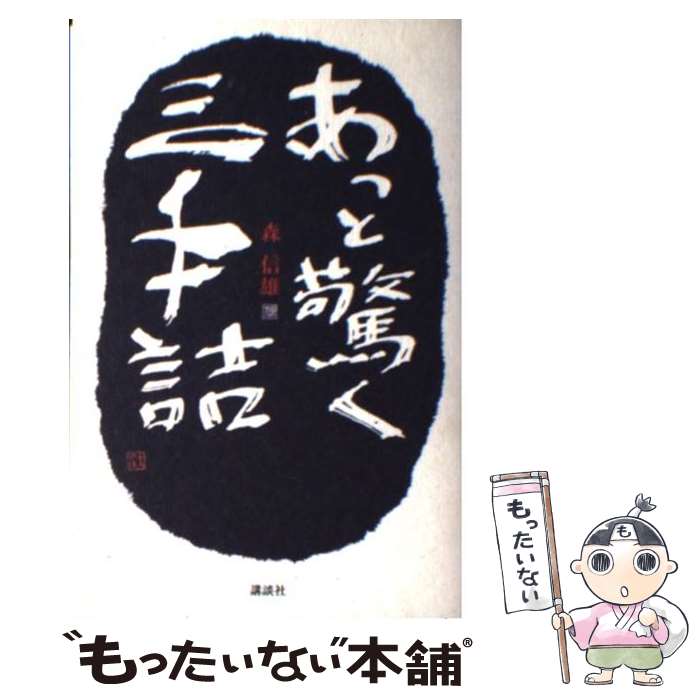 あっと驚く
三手詰
森 信雄
講談社
もったいない
も
"もったいない"本舗®